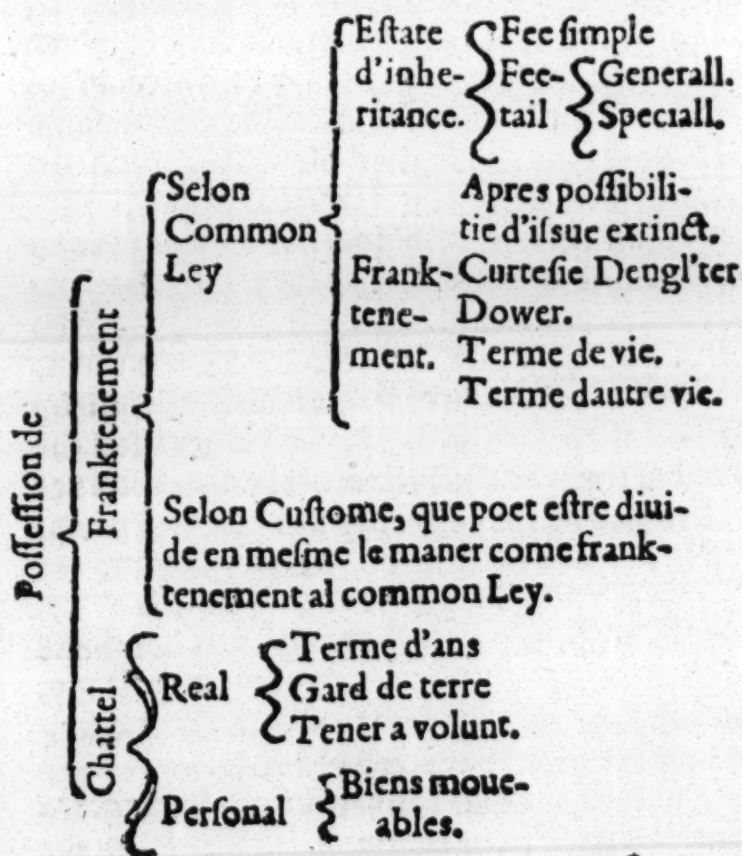 Possession de
Franktenement
Selon
Common
Ley
Eſtate
d'inhe-
ritance.
Fee ſimple
Fee-
tail
Generall.
Speciall.
Frank-
tene-
ment.
Apres poſſibili-
tie d'iſsue extinct.
Curteſie Dengl'ter
Dower.
Terme de vie.
Terme dautre vie.
Selon Cuſtome, que poet eſtre diui-
de en meſme le maner come frank-
tenement al common Ley.
Chattel
Real
Terme d'ans
Gard de terre
Tener a volunt.
Perſonal
Biens moue-
ables.